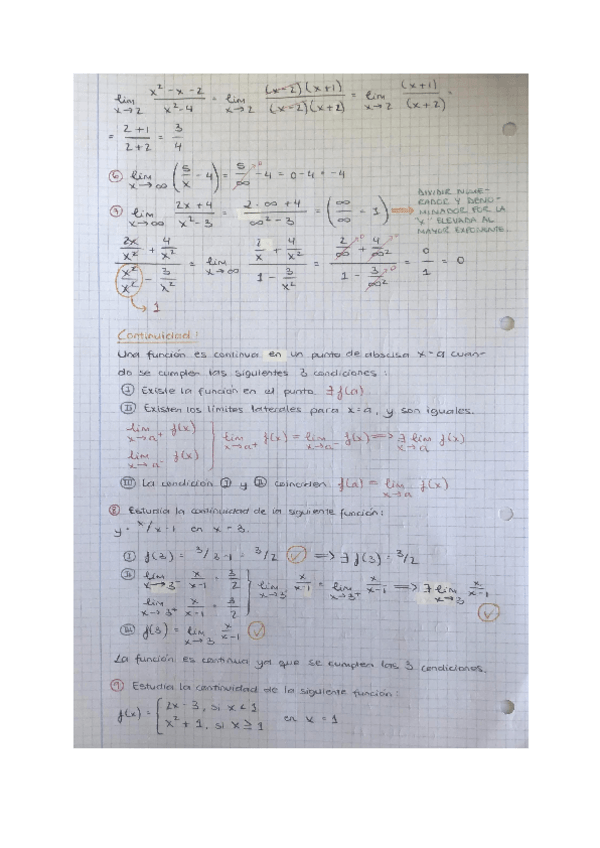 lim x→2 (x² - x - 2)/(x² - 4) = lim x→2 ((x-2)(x+1))/((x-2)(x+2)) = lim x→2 (x+1)/(x+2) =
= (2+1)/(2+2) = 3/4
⑥ lim x→∞ (5/x - 4) = 5/∞ - 4 = 0 - 4 = -4
lim x→∞ (2x+4)/(x²-3) = (2·∞+4)/(∞²-3) = (∞/∞ - 1)
DIVIDIR NUME-
RADOR Y DENO-
MINADOR POR LA
"X" ELEVADA AL
MAYOR EXPONENTE.
(2x/x² + 4/x²)/(x²/x² - 3/x²) = lim x→∞ (2/x + 4/x²)/(1 - 3/x²) = (2/∞ + 4/∞²)/(1 - 3/∞²) = 0/1 = 0
1
Continuidad:
Una función es continua en un punto de abscisa x=a cuan-
do se cumplen las siguientes 3 condiciones:
Ⓘ Existe la función en el punto. ∃ f(a)
Ⓘⓘ Existen los límites laterales para x=a, y son iguales.
lim x→a⁺ f(x)
lim x→a⁻ f(x)
lim x→a⁺ f(x) = lim x→a⁻ f(x) ⟹ ∃ lim x→a f(x)
III La condición I y II coinciden. f(a) = lim x→a f(x)
⑧ Estudia la continuidad de la siguiente función:
y = x/x-1 en x = 3.
I f(3) = 3/3-1 = 3/2 ✓ ⟹ ∃ f(3) = 3/2
II lim x→3⁻ x/x-1 = 3/2
lim x→3⁺ x/x-1 = 3/2
lim x→3⁻ x/x-1 = lim x→3⁺ x/x-1 ⟹ ∃ lim x→3 x/x-1 ✓
III f(3) = lim x→3 x/x-1 ✓
La función es continua ya que se cumplen las 3 condiciones.
⑨ Estudia la continuidad de la siguiente función:
f(x) = { 2x-3, si x < 1
x²+1, si x ≥ 1
en x = 1